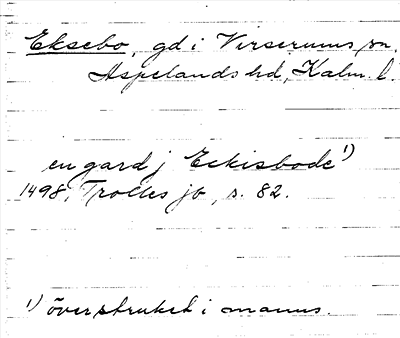 Eksebo, gd i Virserums sn.
Aspelands hd, Kalm. l.
en gard j Eckisbode 1)
1498, Trolles jb, s. 82.
1) överstruket i manus.